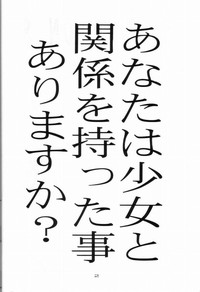 あなたは少女と
関係を持った事
ありますか？